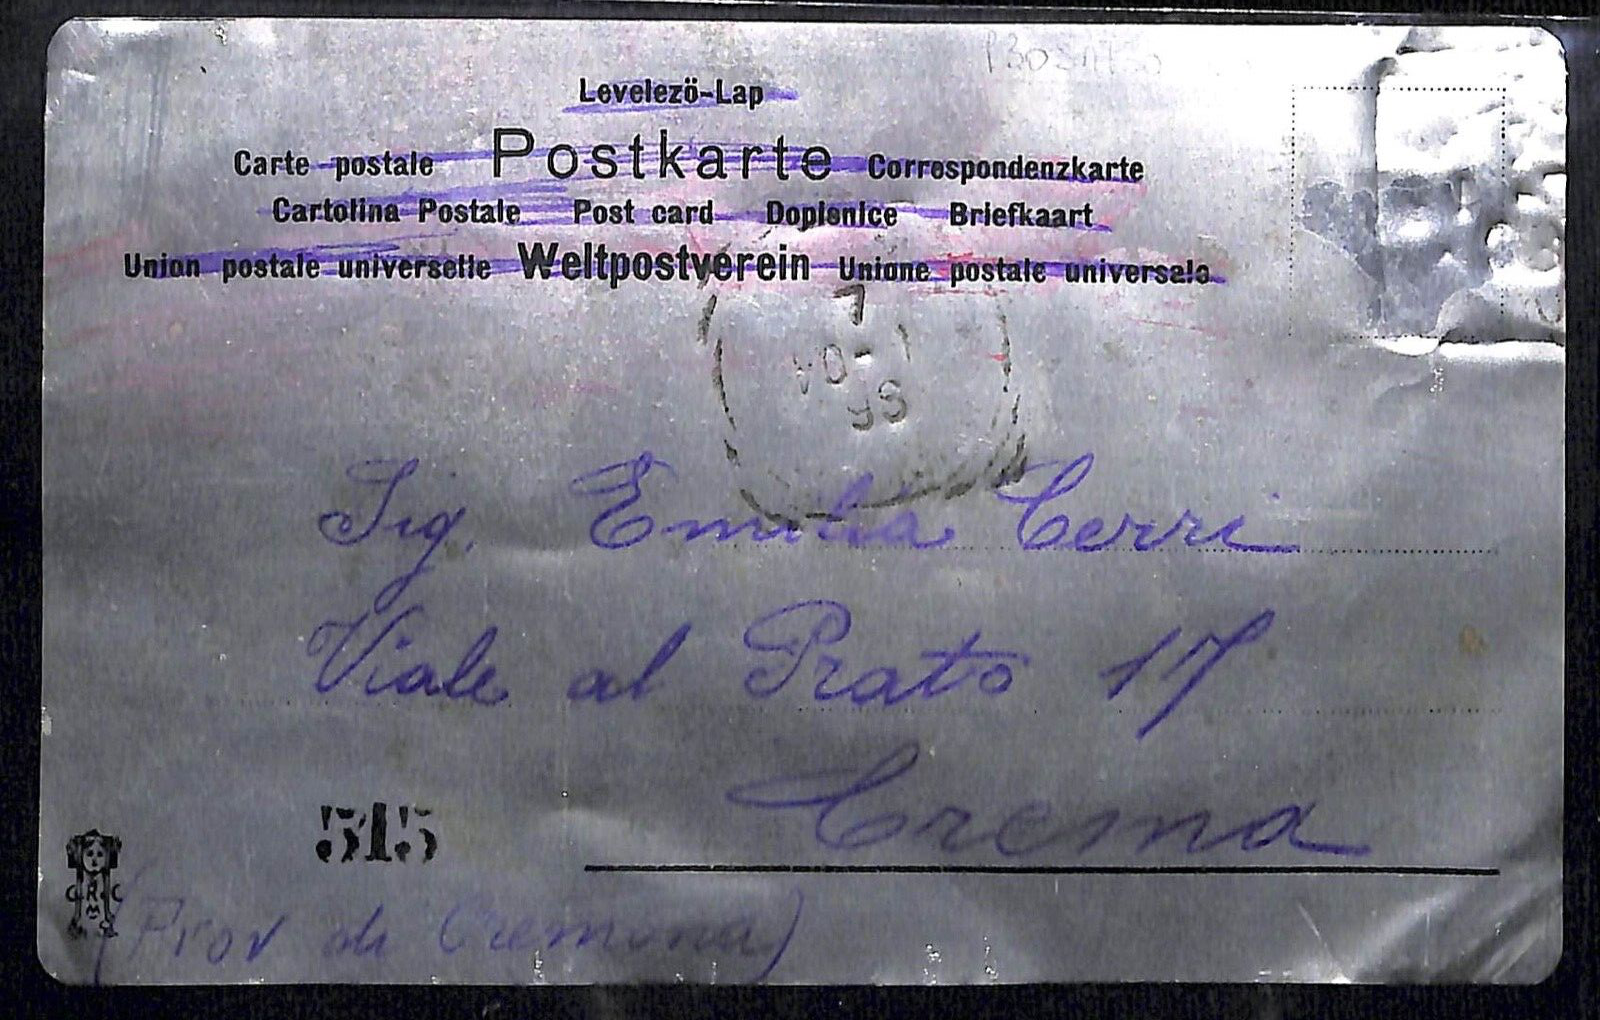 Levelező-Lap
Carte postale Postkarte Correspondenzkarte
Cartolina Postale Post card Dopisnice Briefkaart
Union postale universelle Weltpostverein Unione postale universale
7
Sig. Emilia Cerri
Viale al Prato 17
Crema
515
(Prov di Cremona)